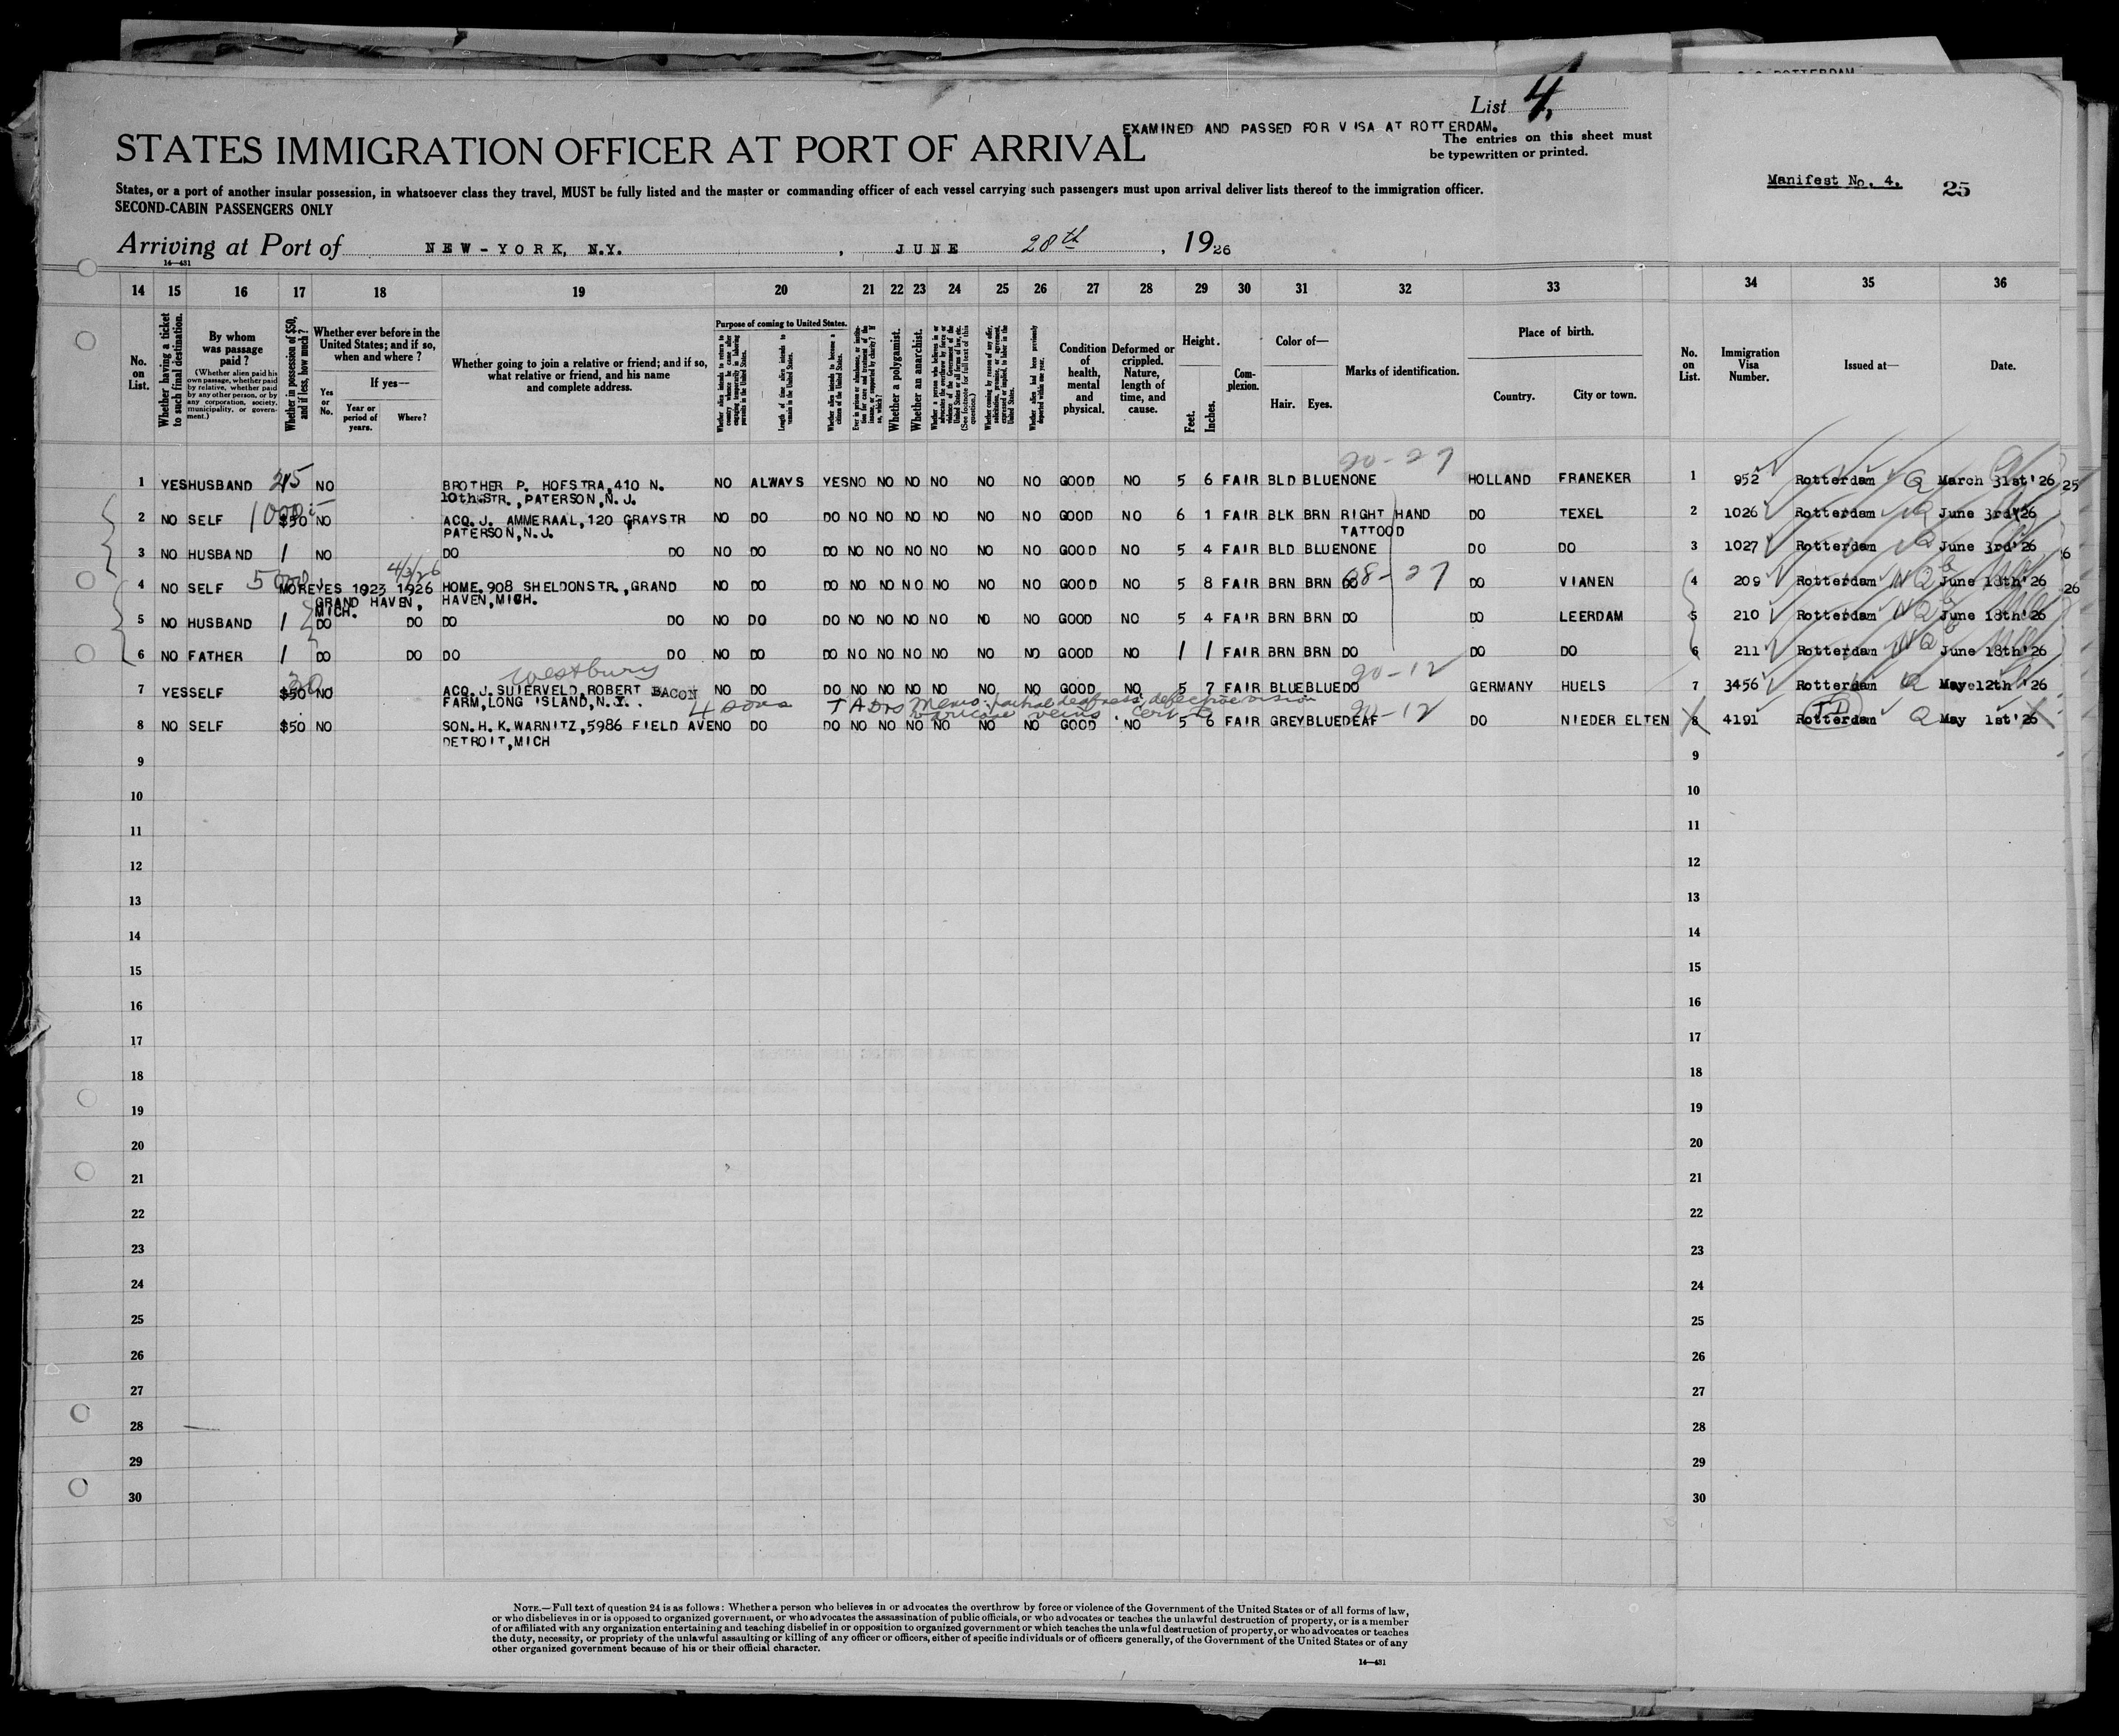 List 4.
EXAMINED AND PASSED FOR VISA AT ROTTERDAM.
STATES IMMIGRATION OFFICER AT PORT OF ARRIVAL
The entries on this sheet must
be typewritten or printed.
Manifest No. 4. 25
States, or a port of another insular possession, in whatsoever class they travel, MUST be fully listed and the master or commanding officer of each vessel carrying such passengers must upon arrival deliver lists thereof to the immigration officer.
SECOND-CABIN PASSENGERS ONLY
Arriving at Port of NEW-YORK, N.Y. , JUNE 28th , 1926
14—431
14 15 16 17 18 19 20 21 22 23 24 25 26 27 28 29 30 31 32 33 34 35 36
No. on List.
Whether having a ticket to such final destination.
By whom was passage paid?
(Whether alien paid his own passage, whether paid by relative, whether paid by any other person, or by any corporation, society, municipality, or government.)
Whether in possession of $50, and if less, how much?
Whether ever before in the United States; and if so, when and where?
Yes or No.
If yes—
Year or period of years.
Where?
Whether going to join a relative or friend; and if so, what relative or friend, and his name and complete address.
Purpose of coming to United States.
Length of time alien intends to remain in the United States.
Whether alien intends to become a citizen of the United States.
Whether a polygamist.
Whether an anarchist.
Condition of health, mental and physical.
Deformed or crippled. Nature, length of time, and cause.
Height.
Feet. Inches.
Complexion.
Color of—
Hair. Eyes.
Marks of identification.
Place of birth.
Country. City or town.
No. on List.
Immigration Visa Number.
Issued at—
Date.
90-27
1 YES HUSBAND 25 NO BROTHER P. HOFSTRA,410 N. NO ALWAYS YES NO NO NO NO NO NO GOOD NO 5 6 FAIR BLD BLUE NONE HOLLAND FRANEKER 1 952 Rotterdam Q March 31st'26 25
10th.STR.,PATERSON,N.J.
2 NO SELF $50 NO ACQ.J. AMMERAAL,120 GRAYSTR NO DO DO NO NO NO NO NO NO GOOD NO 6 1 FAIR BLK BRN RIGHT HAND DO TEXEL 2 1026 Rotterdam June 3rd'26
PATERSON,N.J. TATTOOD
3 NO HUSBAND 1 NO DO DO NO DO DO NO NO NO NO NO NO GOOD NO 5 4 FAIR BLD BLUE NONE DO DO 3 1027 Rotterdam June 3rd'26 6
4/3/26
4 NO SELF MORE YES 1923 1926 HOME.908 SHELDONSTR.,GRAND NO DO DO NO NO NO NO NO NO GOOD NO 5 8 FAIR BRN BRN DO 08-27 DO VIANEN 4 209 Rotterdam NQ June 18th'26 26
GRAND HAVEN, HAVEN,MICH.
MICH.
5 NO HUSBAND 1 DO DO DO DO NO DO DO NO NO NO NO NO NO GOOD NO 5 4 FAIR BRN BRN DO DO LEERDAM 5 210 Rotterdam NQ June 18th'26
6 NO FATHER 1 DO DO DO DO NO DO DO NO NO NO NO NO NO GOOD NO 1 1 FAIR BRN BRN DO DO DO 6 211 Rotterdam NQ June 18th'26
Westbury 90-12
7 YES SELF $50 30 NO ACQ.J.SUIERVELD,ROBERT BACON NO DO DO NO NO NO NO NO NO GOOD NO 5 7 FAIR BLUE BLUE DO GERMANY HUELS 7 3456 Rotterdam Q May 12th '26
FARM,LONG ISLAND,N.Y.
4 sons Memo: partial deafness; defective vision
varicose veins. 90-12
8 NO SELF $50 NO SON.H.K.WARNITZ,5986 FIELD AVE NO DO DO NO NO NO NO NO NO GOOD NO 5 6 FAIR GREY BLUE DEAF DO NIEDER ELTEN 8 4191 Rotterdam Q May 1st'26
DETROIT,MICH
9 9
10 10
11 11
12 12
13 13
14 14
15 15
16 16
17 17
18 18
19 19
20 20
21 21
22 22
23 23
24 24
25 25
26 26
27 27
28 28
29 29
30 30
NOTE.—Full text of question 24 is as follows: Whether a person who believes in or advocates the overthrow by force or violence of the Government of the United States or of all forms of law,
or who disbelieves in or is opposed to organized government, or who advocates the assassination of public officials, or who advocates or teaches the unlawful destruction of property, or is a member
of or affiliated with any organization entertaining and teaching disbelief in or opposition to organized government or which teaches the unlawful destruction of property, or who advocates or teaches
the duty, necessity, or propriety of the unlawful assaulting or killing of any officer or officers, either of specific individuals or of officers generally, of the Government of the United States or of any
other organized government because of his or their official character.
14—431